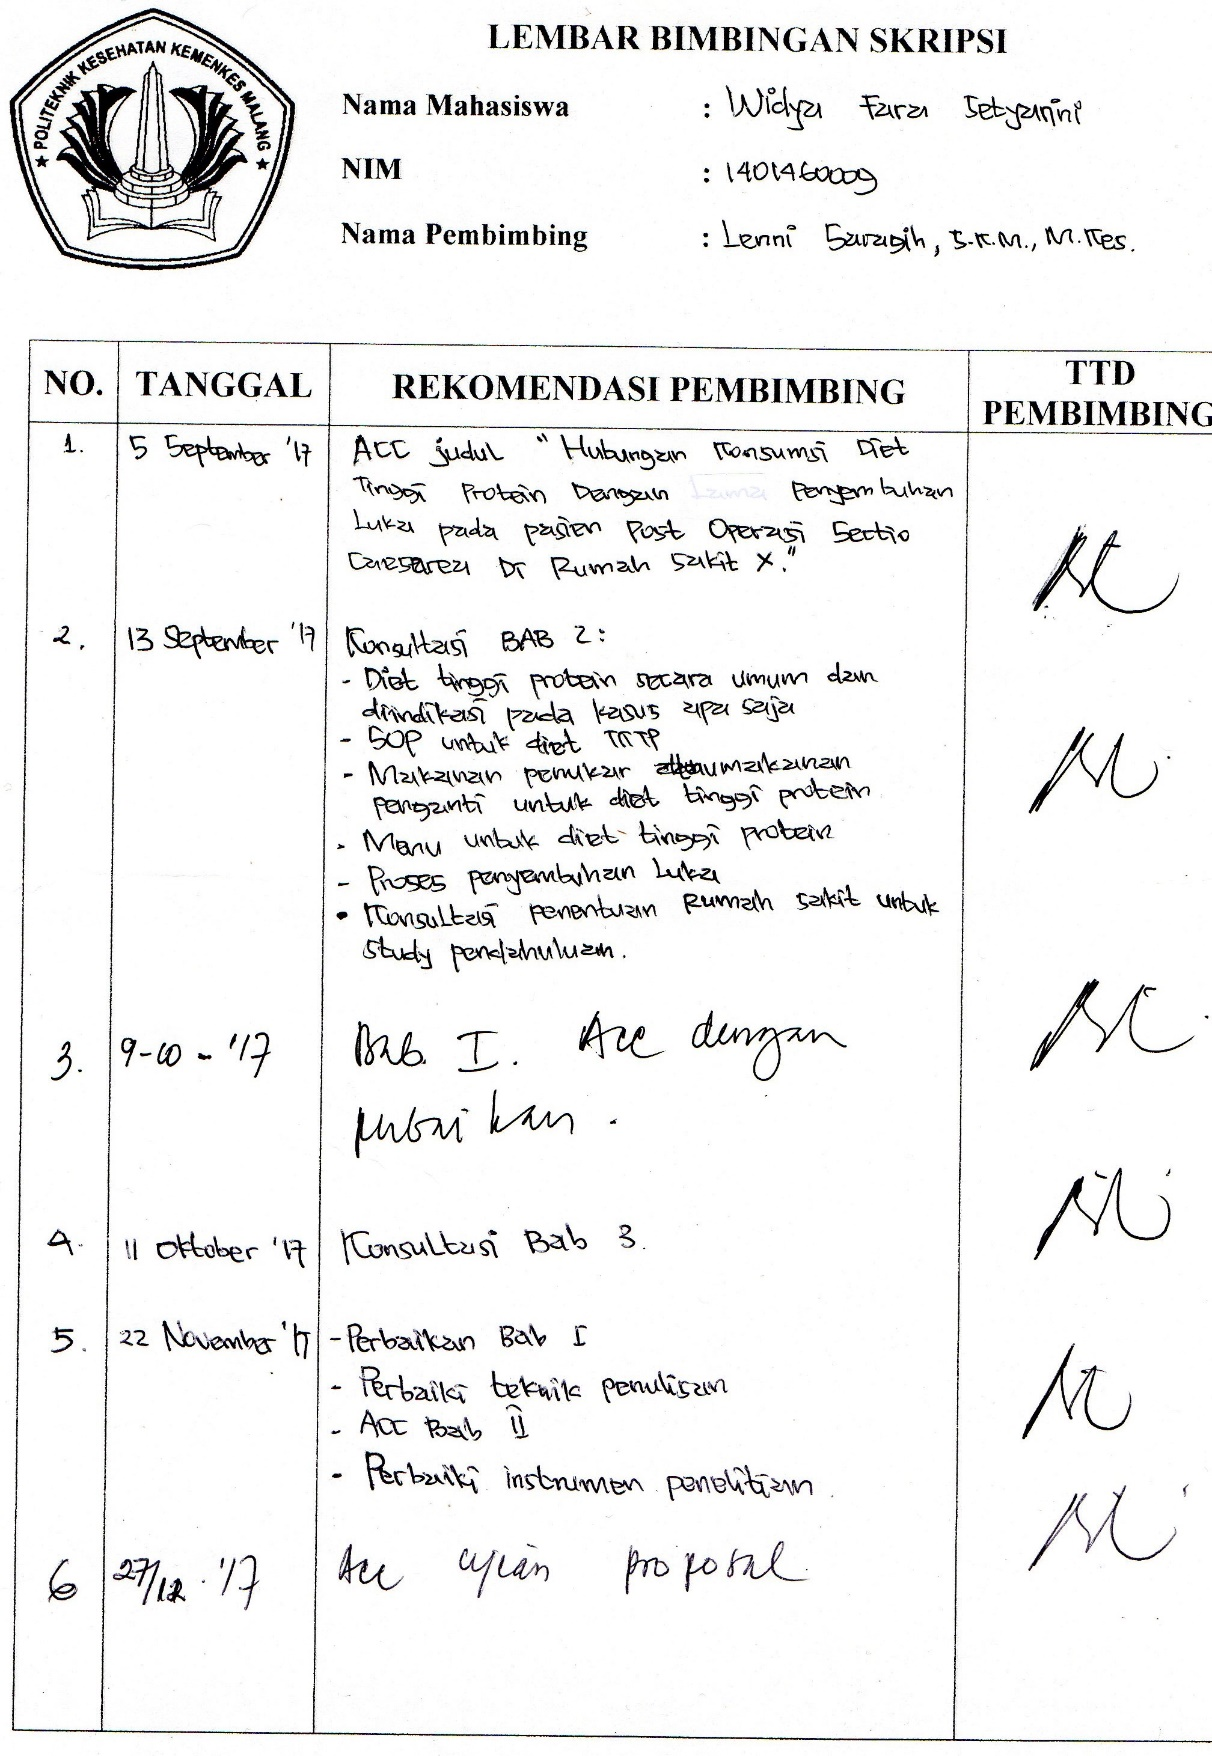 POLITEKNIK KESEHATAN KEMENKES MALANG
LEMBAR BIMBINGAN SKRIPSI
Nama Mahasiswa : Widya Fara Setyarini
NIM : 1401460009
Nama Pembimbing : Lenni Saragih, S.K.M., M.Kes.
NO. TANGGAL REKOMENDASI PEMBIMBING TTD PEMBIMBING
1. 5 September '17 ACC judul " Hubungan Konsumsi Diet
Tinggi Protein Dengan Lama Penyembuhan
Luka pada pasien Post Operasi Sectio
Caesarea Di Rumah Sakit X."
2. 13 September '17 Konsultasi BAB 2:
- Diet tinggi protein secara umum dan
diindikasi pada kasus apa saja
- SOP untuk diet TKTP
- Makanan penukar atau makanan
penganti untuk diet tinggi protein
- Menu untuk diet tinggi protein
- Proses penyembuhan Luka
• Konsultasi penentuan Rumah sakit untuk
study pendahuluan.
3. 9-10-'17 Bab I. Acc dengan
perbaikan.
4. 11 Oktober '17 Konsultasi Bab 3.
5. 22 November '17 - Perbaikan Bab I
- Perbaiki teknik penulisan
- ACC Bab II
- Perbaiki instrumen penelitian.
6 27/12.'17 Acc ujian proposal